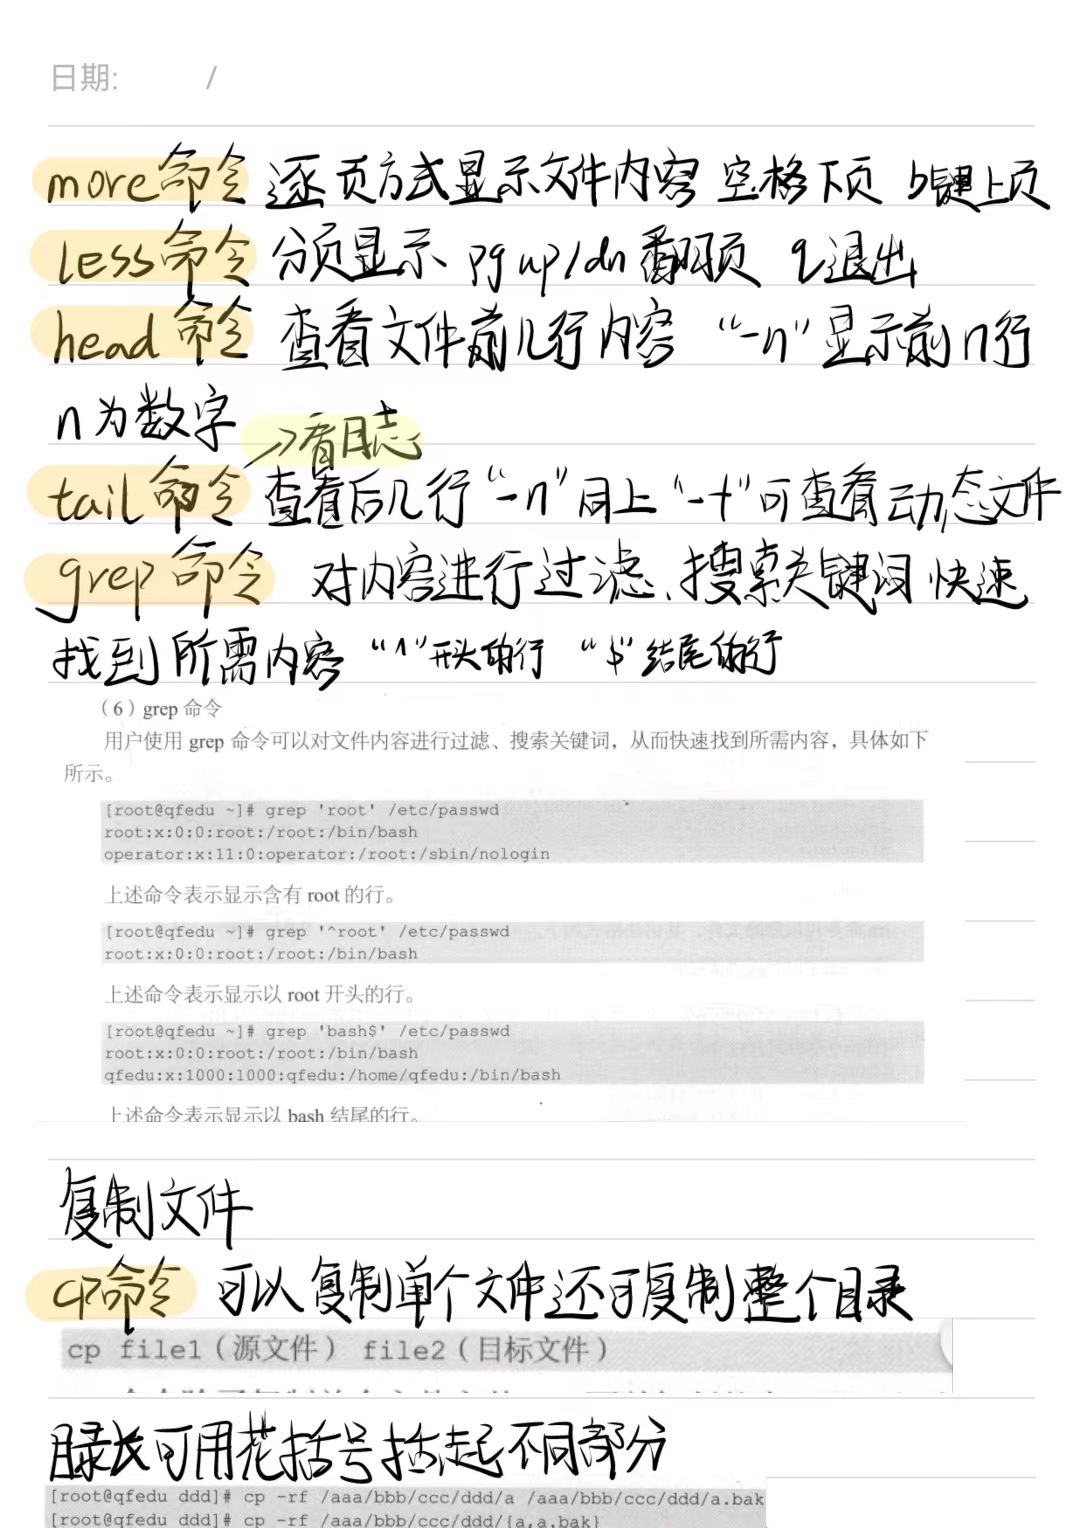 日期: /
more命令 逐页方式显示文件内容 空格下页 b键上页
less命令 分页显示 pg up/dn翻页 q退出
head 命令 查看文件前几行内容 “-n”显示前n行
n为数字
→看日志
tail 命令 查看后几行“-n”同上“-f”可查看动态文件
grep 命令 对内容进行过滤、搜索关键词 快速
找到所需内容 “^”开头的行 “$”结尾的行
（6）grep 命令
用户使用 grep 命令可以对文件内容进行过滤、搜索关键词，从而快速找到所需内容，具体如下
所示。
[root@qfedu ~]# grep 'root' /etc/passwd
root:x:0:0:root:/root:/bin/bash
operator:x:11:0:operator:/root:/sbin/nologin
上述命令表示显示含有 root 的行。
[root@qfedu ~]# grep '^root' /etc/passwd
root:x:0:0:root:/root:/bin/bash
上述命令表示显示以 root 开头的行。
[root@qfedu ~]# grep 'bash$' /etc/passwd
root:x:0:0:root:/root:/bin/bash
qfedu:x:1000:1000:qfedu:/home/qfedu:/bin/bash
上述命令表示显示以 bash 结尾的行。
复制文件
cp命令 可以复制单个文件还可复制整个目录
cp file1（源文件） file2（目标文件）
目录长可用花括号括起不同部分
[root@qfedu ddd]# cp -rf /aaa/bbb/ccc/ddd/a /aaa/bbb/ccc/ddd/a.bak
[root@qfedu ddd]# cp -rf /aaa/bbb/ccc/ddd/{a,a.bak}